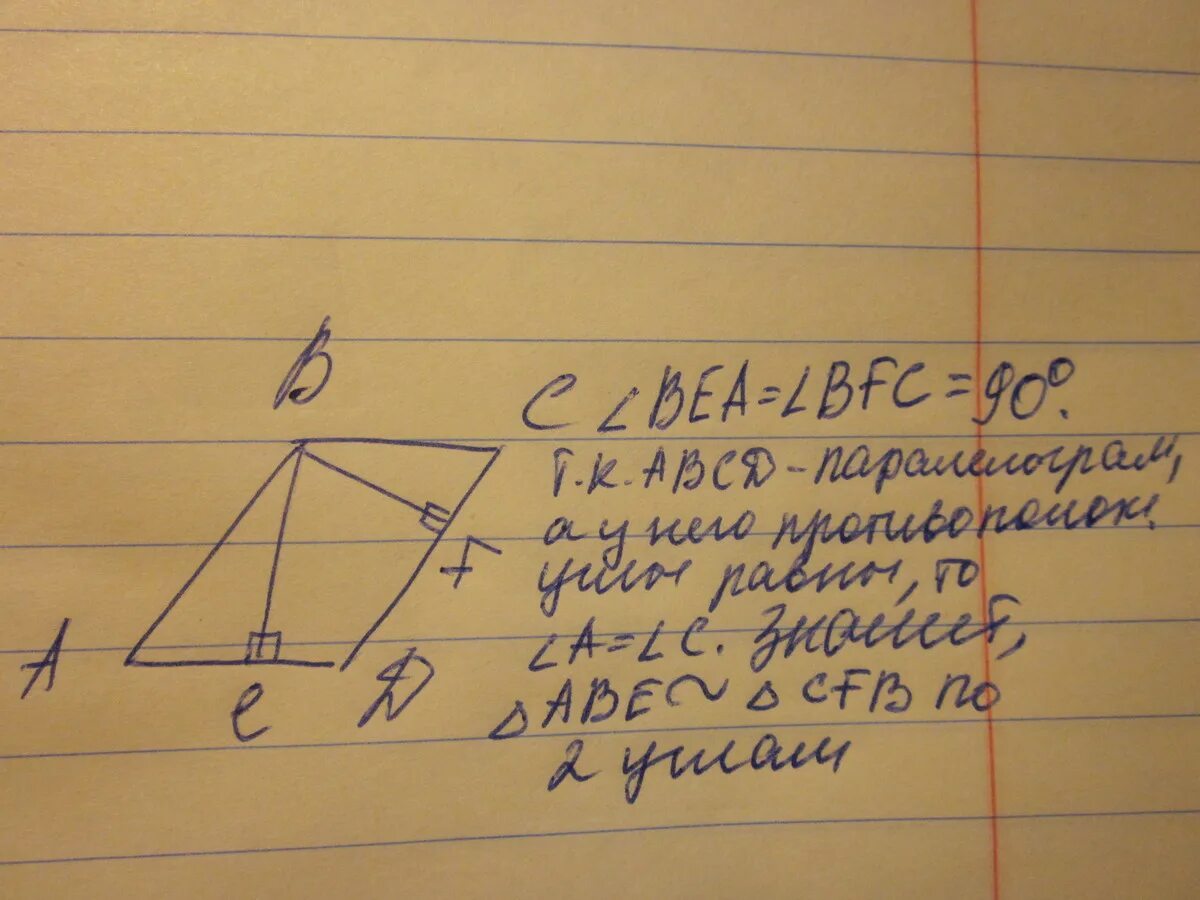 B
C ∠BEA=∠BFC=90°.
Т.к. ABCD-паралелограм,
а у него противополож.
углы равны, то
F
∠A=∠C. Значит,
A
e D
△ABE~△CFB по
2 углам